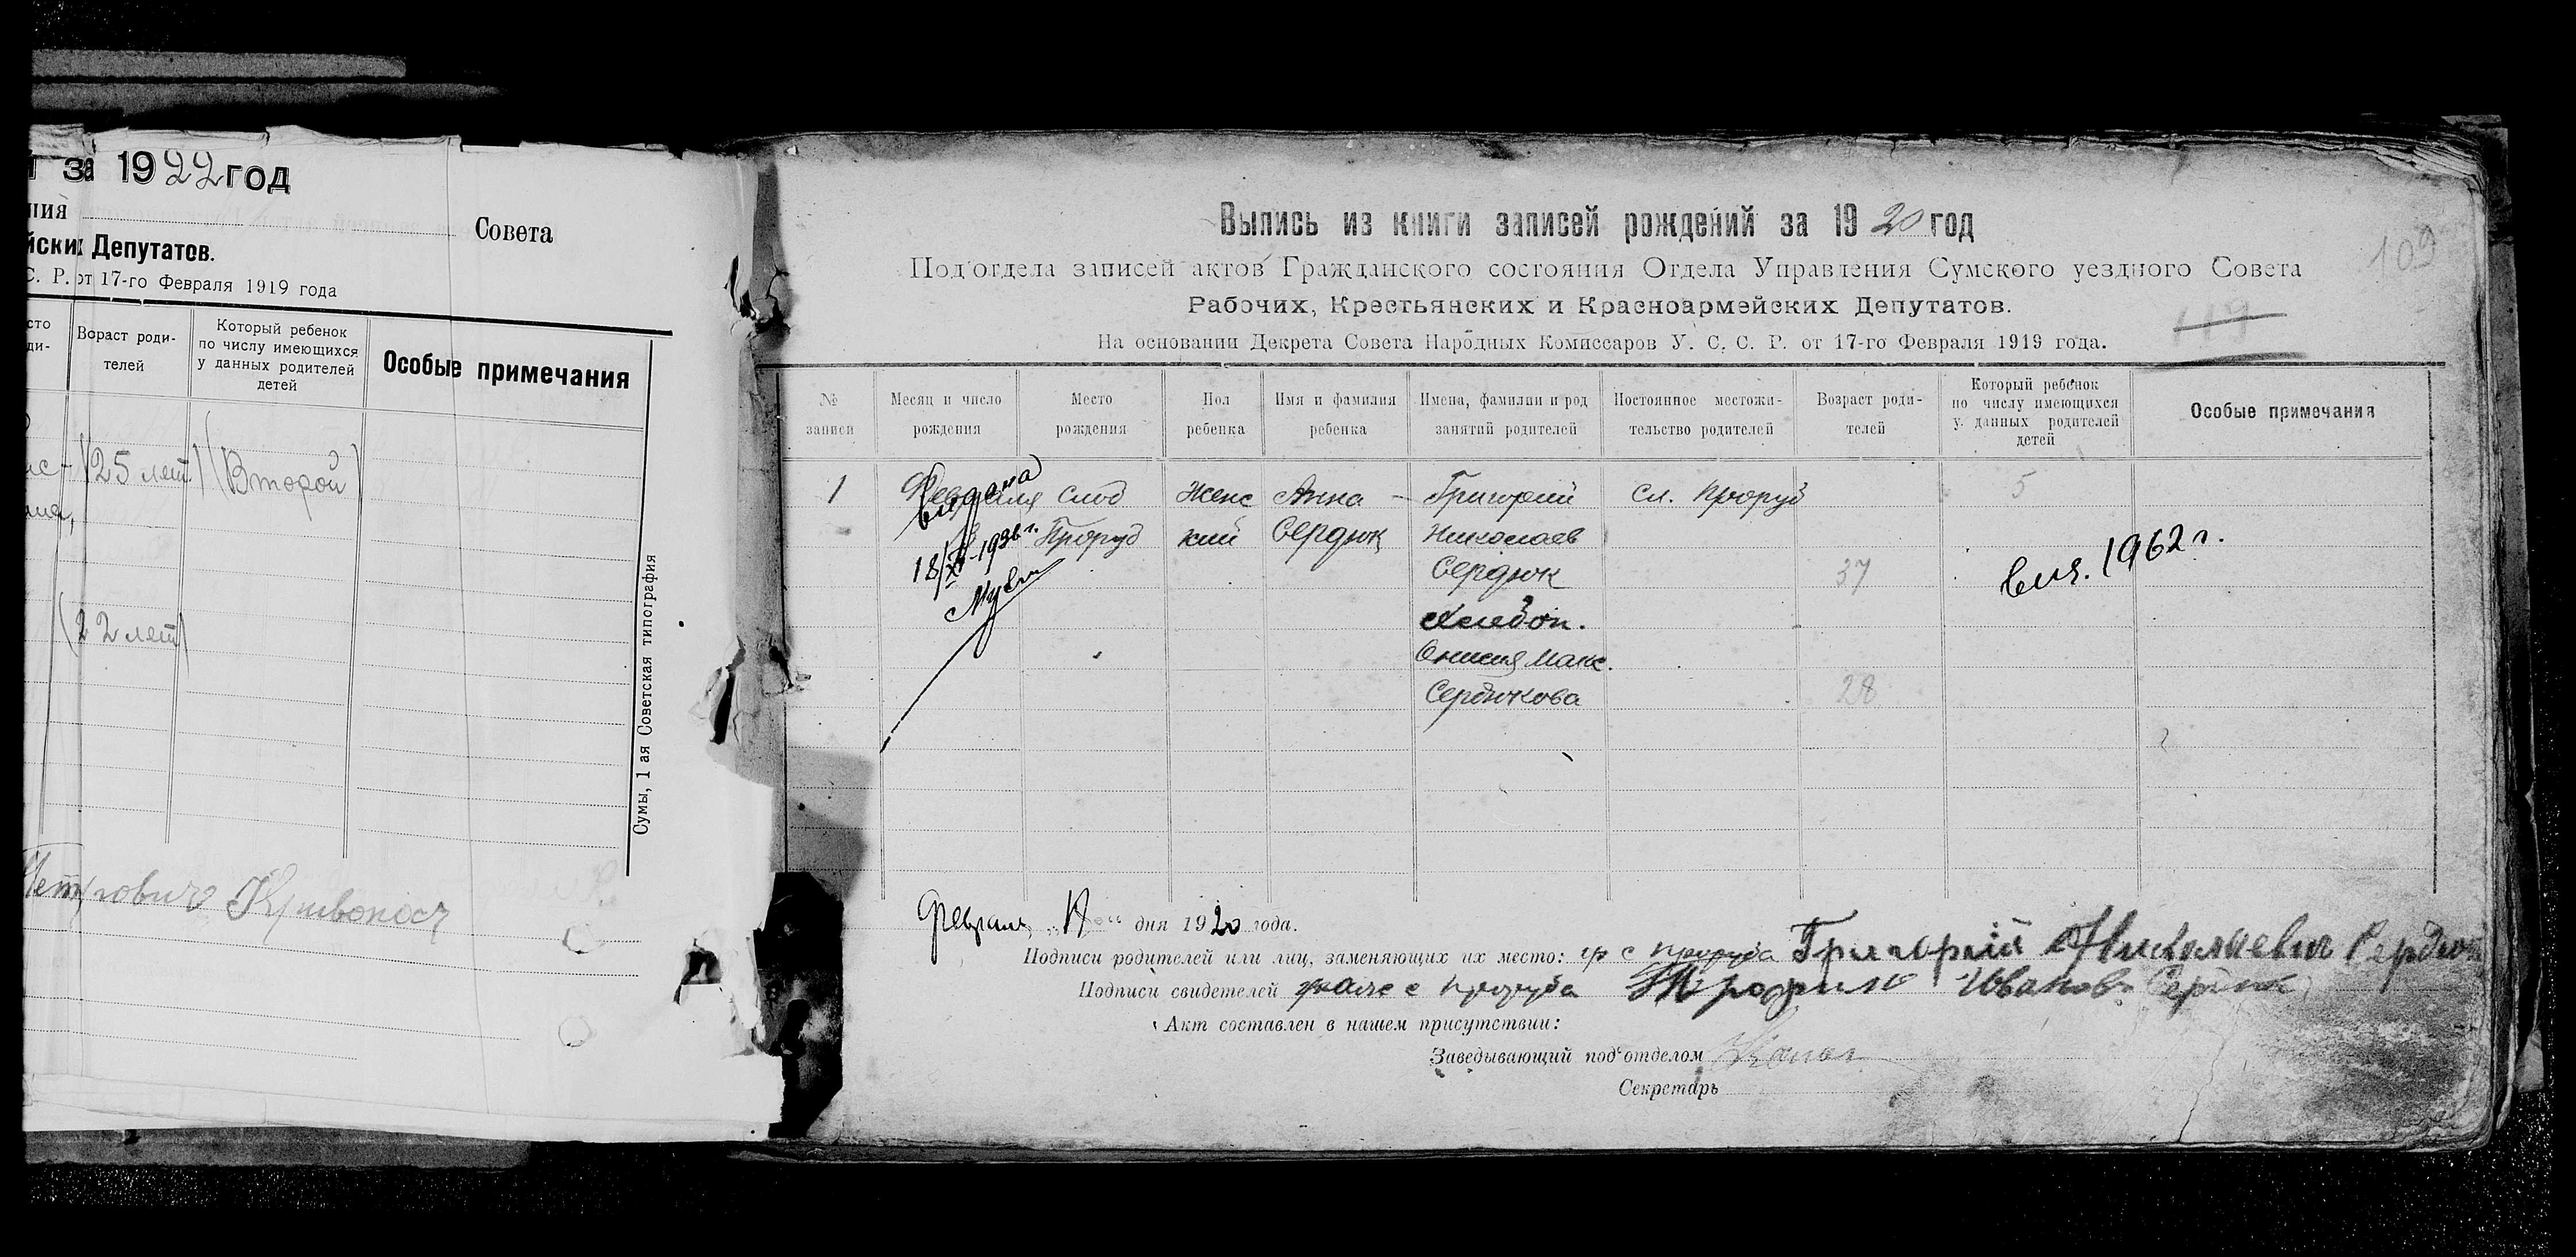 за 1922 год
ния Совета
йских Депутатов.
С. Р. от 17-го Февраля 1919 года
сто
ди-
Вораст роди-
телей
Который ребенок
по числу имеющихся
у данных родителей
детей
Особые примечания
25 лет
Второй
22 лет
Сумы, 1 ая Советская типография
Петрович Кривонос
Выпись из книги записей рождений за 1920 год
109
Под'отдела записей актов Гражданского состояния Отдела Управления Сумского уездного Совета
Рабочих, Крестьянских и Красноармейских Депутатов.
На основании Декрета Совета Народных Комиссаров У. С. С. Р. от 17-го Февраля 1919 года.
№
записи
Месяц и число
рождения
Место
рождения
Пол
ребенка
Имя и фамилия
ребенка
Имена, фамилии и род
занятий родителей
Постоянное местожи-
тельство родителей
Возраст роди-
телей
Который ребенок
по числу имеющихся
у данных родителей
детей
Особые примечания
1 Февраля слоб Женс Анна – Григорий сл. Проруб 5
выдана
Проруб кий Сердюк Николаев
18/XI-1936 г.
Сердюк 37
вид. 1962 г.
хлебоп.
Онисия Макс.
Сердюкова 28
Февраля дня 1920 года.
Подписи родителей или лиц, заменяющих их место: гр с Проруба Григорий Николаевич Сердюк
Подписи свидетелей с Проруба Трофим Иванов Сердюк
Акт составлен в нашем присутствии:
Заведывающий под'отделом
Секретарь